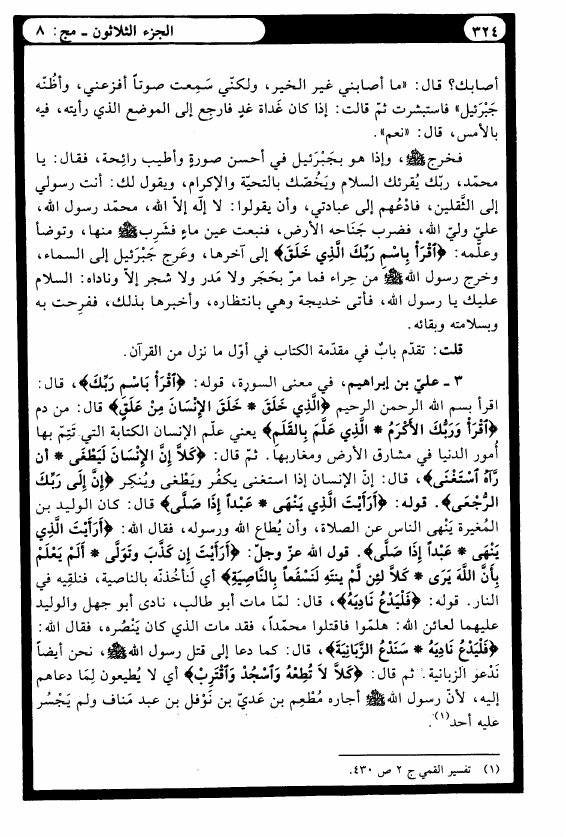 ٣٢٤
الجزء الثلاثون ـ مج: ٨
أصابك؟ قال: «ما أصابني غير الخير، ولكنّي سَمِعت صوتاً أفزعني، وأظُنّه
جَبْرَئيل» فاستبشرت ثمّ قالت: إذا كان غَداة غدٍ فارجِع إلى الموضع الذي رأيته، فيه
بالأمس، قال: «نعم».
فخرج ﷺ، وإذا هو بجَبْرَئيل في أحسن صورةٍ وأطيب رائِحة، فقال: يا
محمّد، ربّك يُقرِئك السلام ويَخُصّك بالتحيّة والإكرام، ويقول لك: أنت رسولي
إلى الثَّقلين، فادْعُهم إلى عبادتي، وأن يقولوا: لا إلٰه إلاّ الله، محمّد رسول الله،
عليّ وليّ الله، فضرب جَناحه الأرض، فنبعت عين ماءٍ فشَرِب ﷺ منها، وتوضأ
وعلّمه: ﴿اقْرَأْ بِاسْمِ رَبِّكَ الَّذِي خَلَقَ﴾ إلى آخرها، وعَرج جَبْرَئيل إلى السماء،
وخرج رسول الله ﷺ من حِراء فما مرّ بحَجَر ولا مَدر ولا شجر إلاّ وناداه: السلام
عليك يا رسول الله، فأتى خديجة وهي بانتظاره، وأخبرها بذلك، ففرِحت به
وبسلامته وبقائه.
قلت: تقدّم بابٌ في مقدّمة الكتاب في أوّل ما نزل من القرآن.
٣ ـ عليّ بن إبراهيم، في معنى السورة، قوله: ﴿اقْرَأْ بَاسْمِ رَبِّكَ﴾، قال:
اقرأ بسم الله الرحمن الرحيم ﴿الَّذِي خَلَقَ * خَلَقَ الإِنْسَانَ مِنْ عَلَقٍ﴾ قال: من دم
﴿اقْرَأْ وَرَبُّكَ الأَكْرَمُ * الَّذِي عَلَّمَ بِالقَلَمِ﴾ يعني علّم الإنسان الكتابة التي تَتِمّ بها
أُمور الدنيا في مشارق الأرض ومغاربها. ثمّ قال: ﴿كَلاَّ إِنَّ الإِنْسَانَ لَيَطْغَى * أن
رَّآهُ اسْتَغْنَى﴾، قال: إنّ الإنسان إذا استغنى يكفُر ويَطْغى ويُنكِر ﴿إِنَّ إِلَى رَبِّكَ
الرُّجْعَى﴾. قوله: ﴿أَرَأَيْتَ الَّذِي يَنْهَى * عَبْداً إِذَا صَلَّى﴾ قال: كان الوليد بن
المُغيرة يَنْهى الناس عن الصلاة، وأن يُطاع الله ورسوله، فقال الله: ﴿أَرَأَيْتَ الَّذِي
يَنْهَى * عَبْداً إِذَا صَلَّى﴾. قول الله عزّ وجلّ: ﴿أَرَأَيْتَ إِن كَذَّبَ وَتَوَلَّى * أَلَمْ يَعْلَمْ
بِأَنَّ اللَّهَ يَرَى * كَلاَّ لَئِن لَّمْ يَنتَهِ لَنَسْفَعاً بِالنَّاصِيَةِ﴾ أي لَنأخُذنّه بالناصية، فنلقِيه في
النار. قوله: ﴿فَلْيَدْعُ نَادِيَهُ﴾، قال: لمّا مات أبو طالب، نادى أبو جهل والوليد
عليهما لعائن الله: هلمّوا فاقتلوا محمّداً، فقد مات الذي كان يَنْصُره، فقال الله:
﴿فَلْيَدْعُ نَادِيَهُ * سَنَدْعُ الزَّبَانِيَةَ﴾، قال: كما دعا إلى قتل رسول الله ﷺ، نحن أيضاً
نَدْعو الزبانية. ثم قال: ﴿كَلاَّ لاَ تُطِعْهُ وَاسْجُدْ وَاقْتَرِبْ﴾ أي لا يُطيعون لِمَا دعاهم
إليه، لأنّ رسول الله ﷺ أجاره مُطْعِم بن عَديّ بن نَوْفل بن عبد مَناف ولم يَجْسُر
عليه أحد(١).
(١) تفسير القمي ج ٢ ص ٤٣٠.